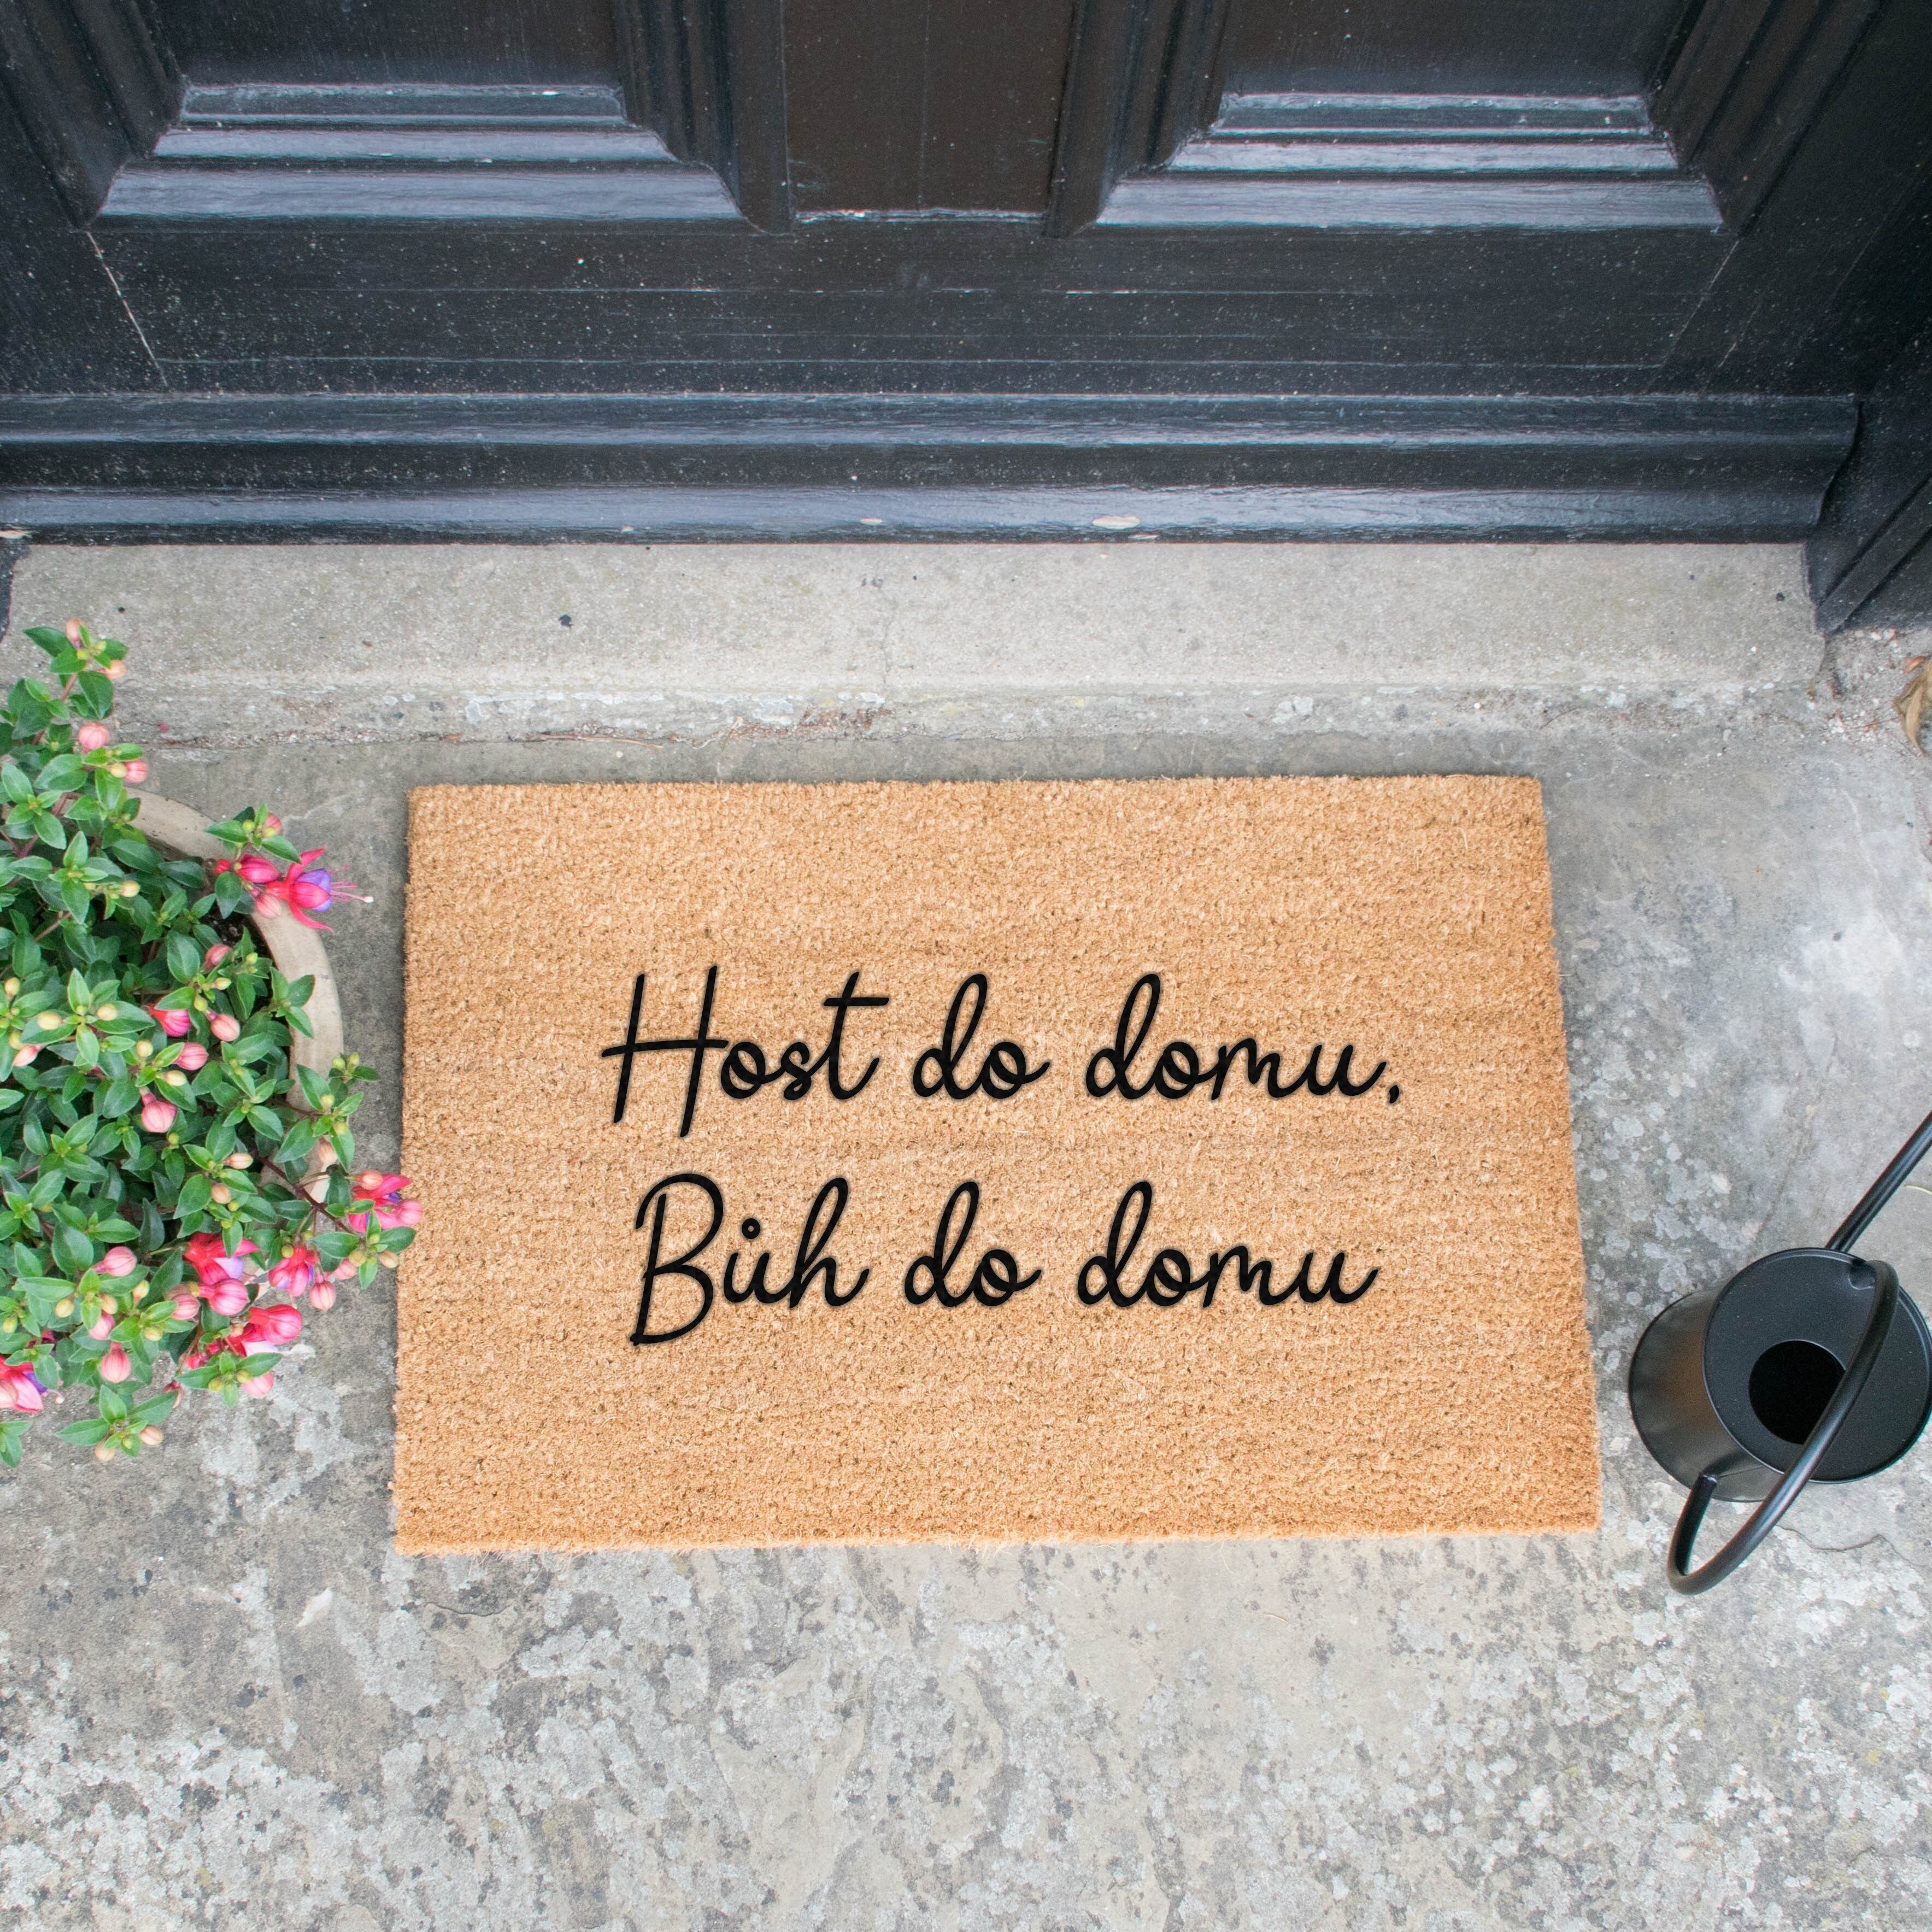 Host do domu,
Bůh do domu